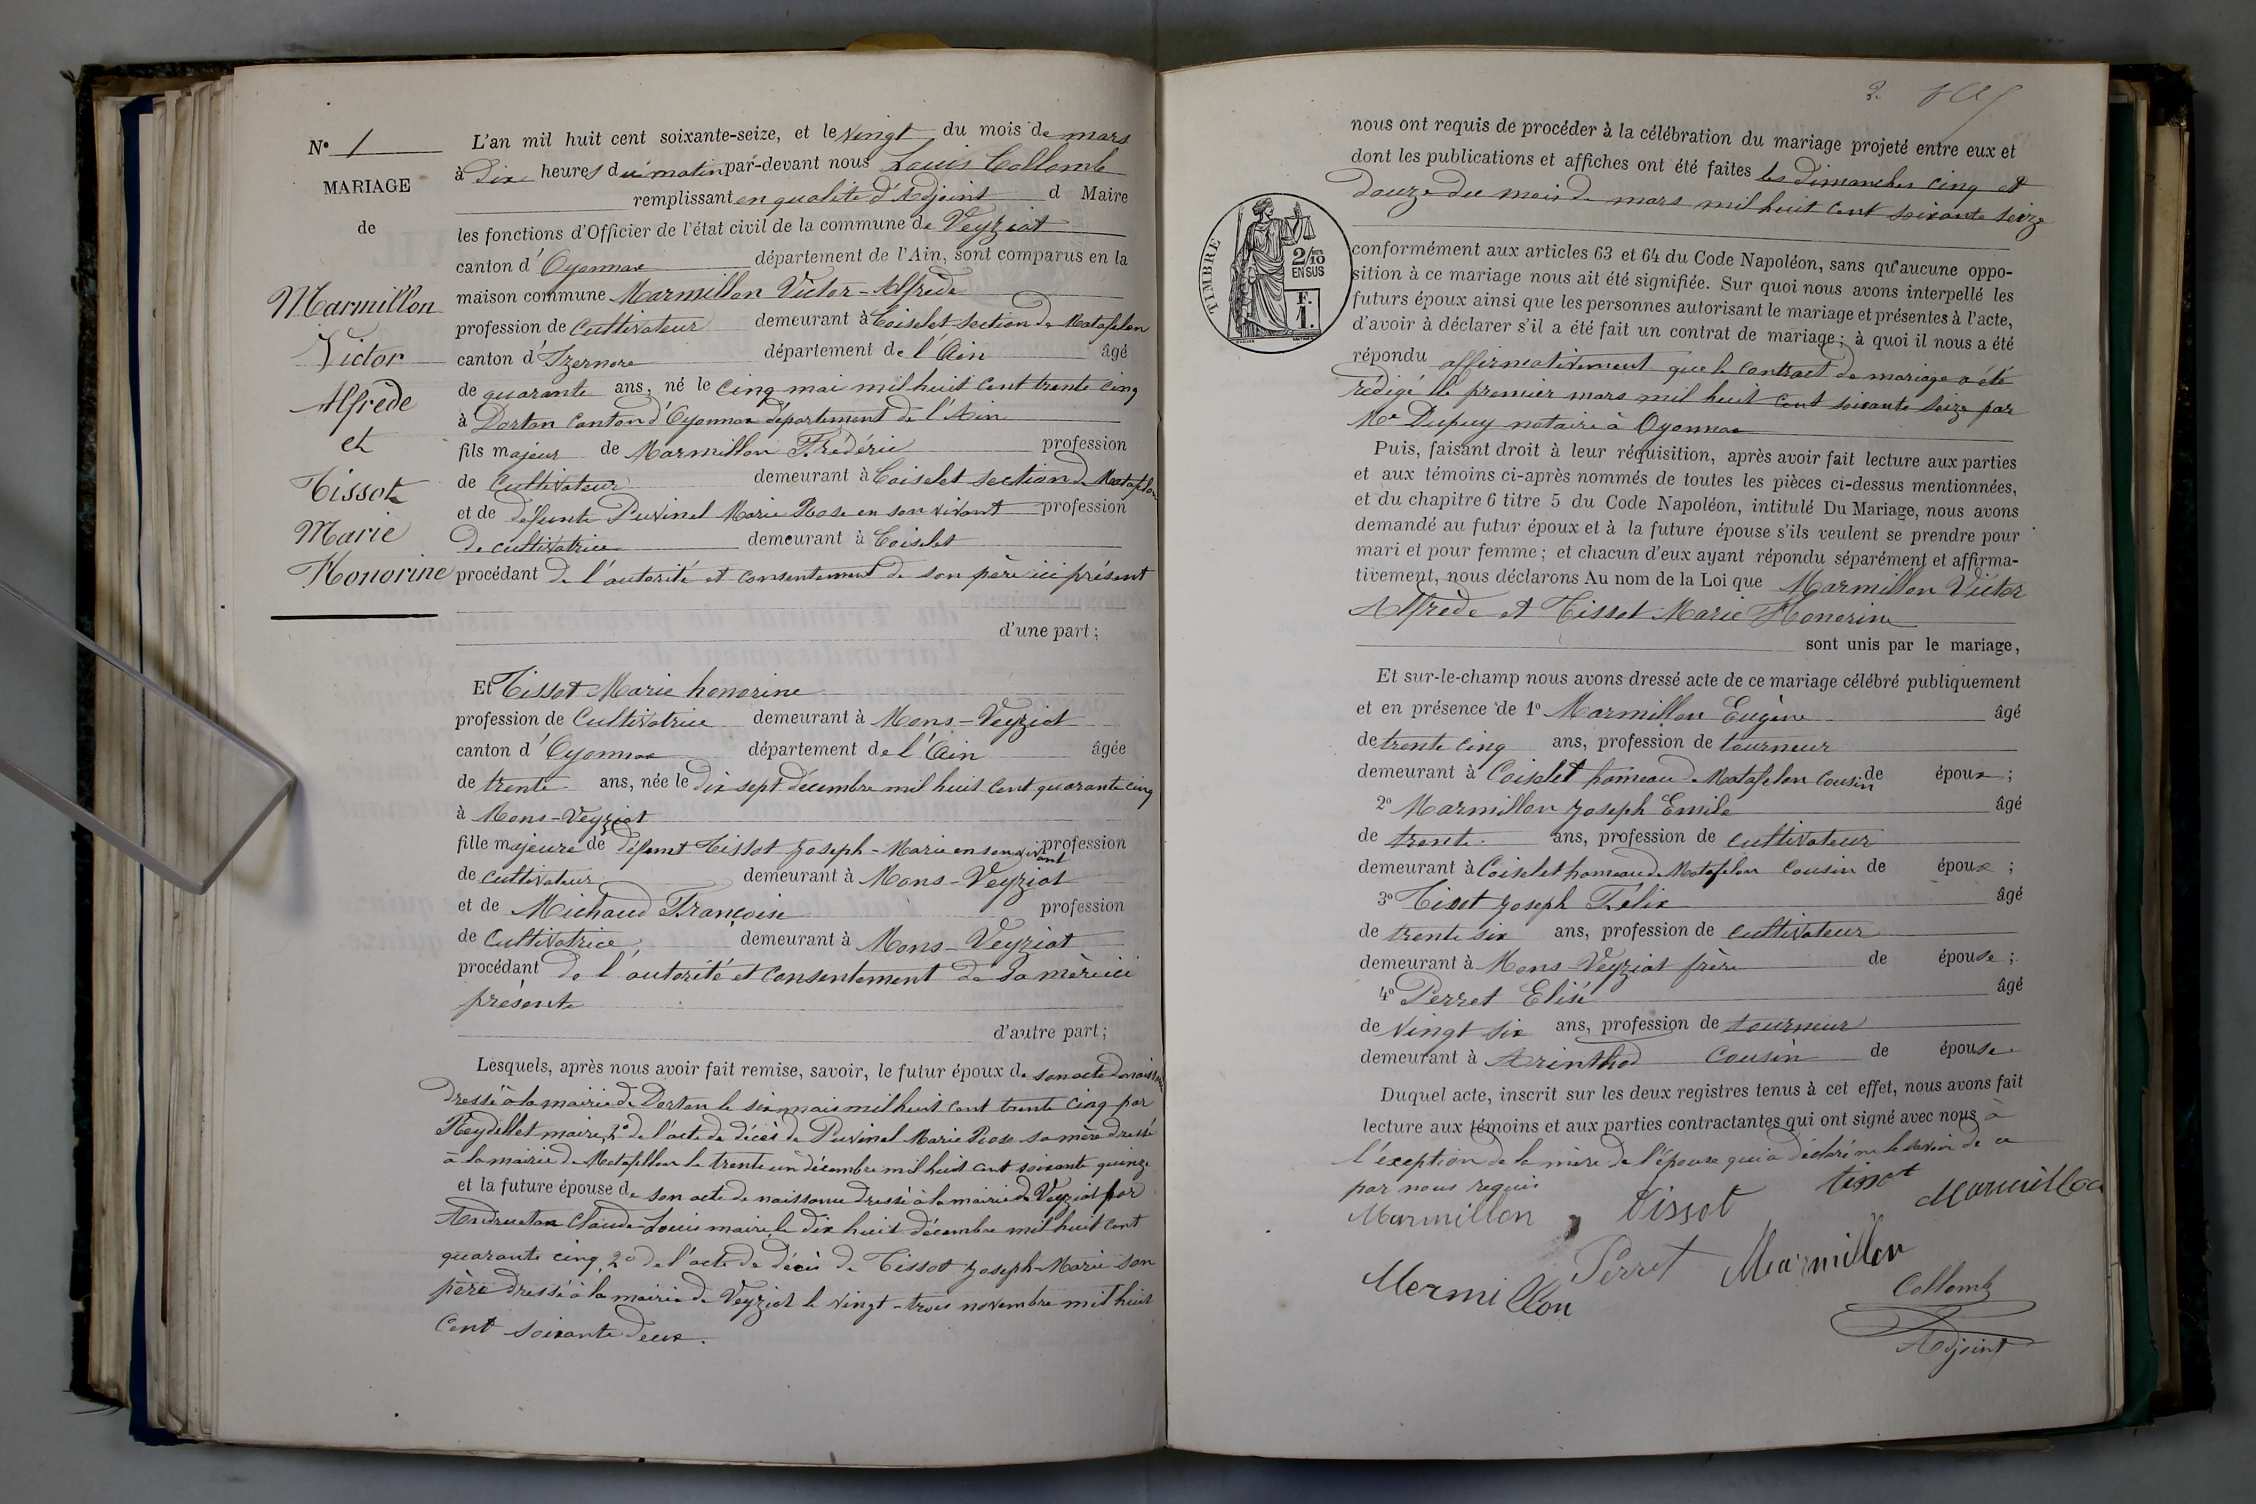 N° 1
MARIAGE
de
Marmillon
Victor
Alfrède
et
Tissot
Marie
Honorine
L'an mil huit cent soixante-seize, et le vingt du mois de mars
à Dix heures du matin par-devant nous Louis Collomb
remplissant en qualité d'Adjoint d Maire
les fonctions d'Officier de l'état civil de la commune de Veyziat
canton d'Oyonnax département de l'Ain, sont comparus en la
maison commune Marmillon Victor-Alfrède
profession de Cultivateur demeurant à Coiselet section de Matafelon
canton d'Izernore département de l'Ain âgé
de quarante ans, né le cinq mai mil huit cent trente cinq
à Dortan canton d'Oyonnax département de l'Ain
fils majeur de Marmillon Frédéric profession
de Cultivateur demeurant à Coiselet section de Matafelon
et de défunte Puvinel Marie Rose en son vivant profession
de cultivatrice demeurant à Coiselet
procédant de l'autorité et consentement de son père ici présent
d'une part;
Et Tissot Marie honorine
profession de Cultivatrice demeurant à Mons-Veyziat
canton d'Oyonnax département de l'Ain âgée
de trente ans, née le dix sept décembre mil huit cent quarante cinq
à Mons-Veyziat
fille majeure de défunt Tissot Joseph-Marie en son vivant profession
de cultivateur demeurant à Mons-Veyziat
et de Michaud Françoise profession
de Cultivatrice demeurant à Mons-Veyziat
procédant de l'autorité et consentement de sa mère ici
présente
d'autre part;
Lesquels, après nous avoir fait remise, savoir, le futur époux de son acte de naissance
dressé à la mairie de Dortan le six mai mil huit cent trente cinq par
Reydellet maire, 2° de l'acte de décès de Puvinel Marie Rose sa mère dressé
à la mairie de Matafelon le trente un décembre mil huit cent soixante quinze
et la future épouse de son acte de naissance dressé à la mairie de Veyziat par
Claude-Louis maire, le dix huit décembre mil huit cent
quarante cinq, 2° de l'acte de décès de Tissot Joseph-Marie son
père dressé à la mairie de Veyziat le vingt-trois novembre mil huit
cent soixante deux.
2
nous ont requis de procéder à la célébration du mariage projeté entre eux et
dont les publications et affiches ont été faites les dimanches cinq et
douze du mois de mars mil huit cent soixante seize
TIMBRE
2/10
EN SUS
F.
1.
conformément aux articles 63 et 64 du Code Napoléon, sans qu'aucune oppo-
sition à ce mariage nous ait été signifiée. Sur quoi nous avons interpellé les
futurs époux ainsi que les personnes autorisant le mariage et présentes à l'acte,
d'avoir à déclarer s'il a été fait un contrat de mariage; à quoi il nous a été
répondu affirmativement que le contract de mariage a été
rédigé le premier mars mil huit cent soixante seize par
Me Dupuy notaire à Oyonnax
Puis, faisant droit à leur réquisition, après avoir fait lecture aux parties
et aux témoins ci-après nommés de toutes les pièces ci-dessus mentionnées,
et du chapitre 6 titre 5 du Code Napoléon, intitulé Du Mariage, nous avons
demandé au futur époux et à la future épouse s'ils veulent se prendre pour
mari et pour femme; et chacun d'eux ayant répondu séparément et affirma-
tivement, nous déclarons Au nom de la Loi que Marmillon Victor
Alfrède et Tissot Marie Honorine
sont unis par le mariage,
Et sur-le-champ nous avons dressé acte de ce mariage célébré publiquement
et en présence de 1° Marmillon Eugène âgé
de trente cinq ans, profession de tourneur
demeurant à Coiselet hameau de Matafelon cousin de époux;
2° Marmillon Joseph Emile âgé
de trente ans, profession de cultivateur
demeurant à Coiselet hameau de Matafelon cousin de époux;
3° Tissot Joseph Félix âgé
de trente six ans, profession de cultivateur
demeurant à Mons-Veyziat frère de épouse;
4° Perret Elisé âgé
de vingt six ans, profession de tourneur
demeurant à Arinthod cousin de épouse
Duquel acte, inscrit sur les deux registres tenus à cet effet, nous avons fait
lecture aux témoins et aux parties contractantes qui ont signé avec nous à
l'exeption de la mère de l'épouse qui a déclaré ne le savoir de ce
par nous requis
Marmillon Tissot tissot Marmillon
Mermillon Perret Marmillon
Collomb
Adjoint